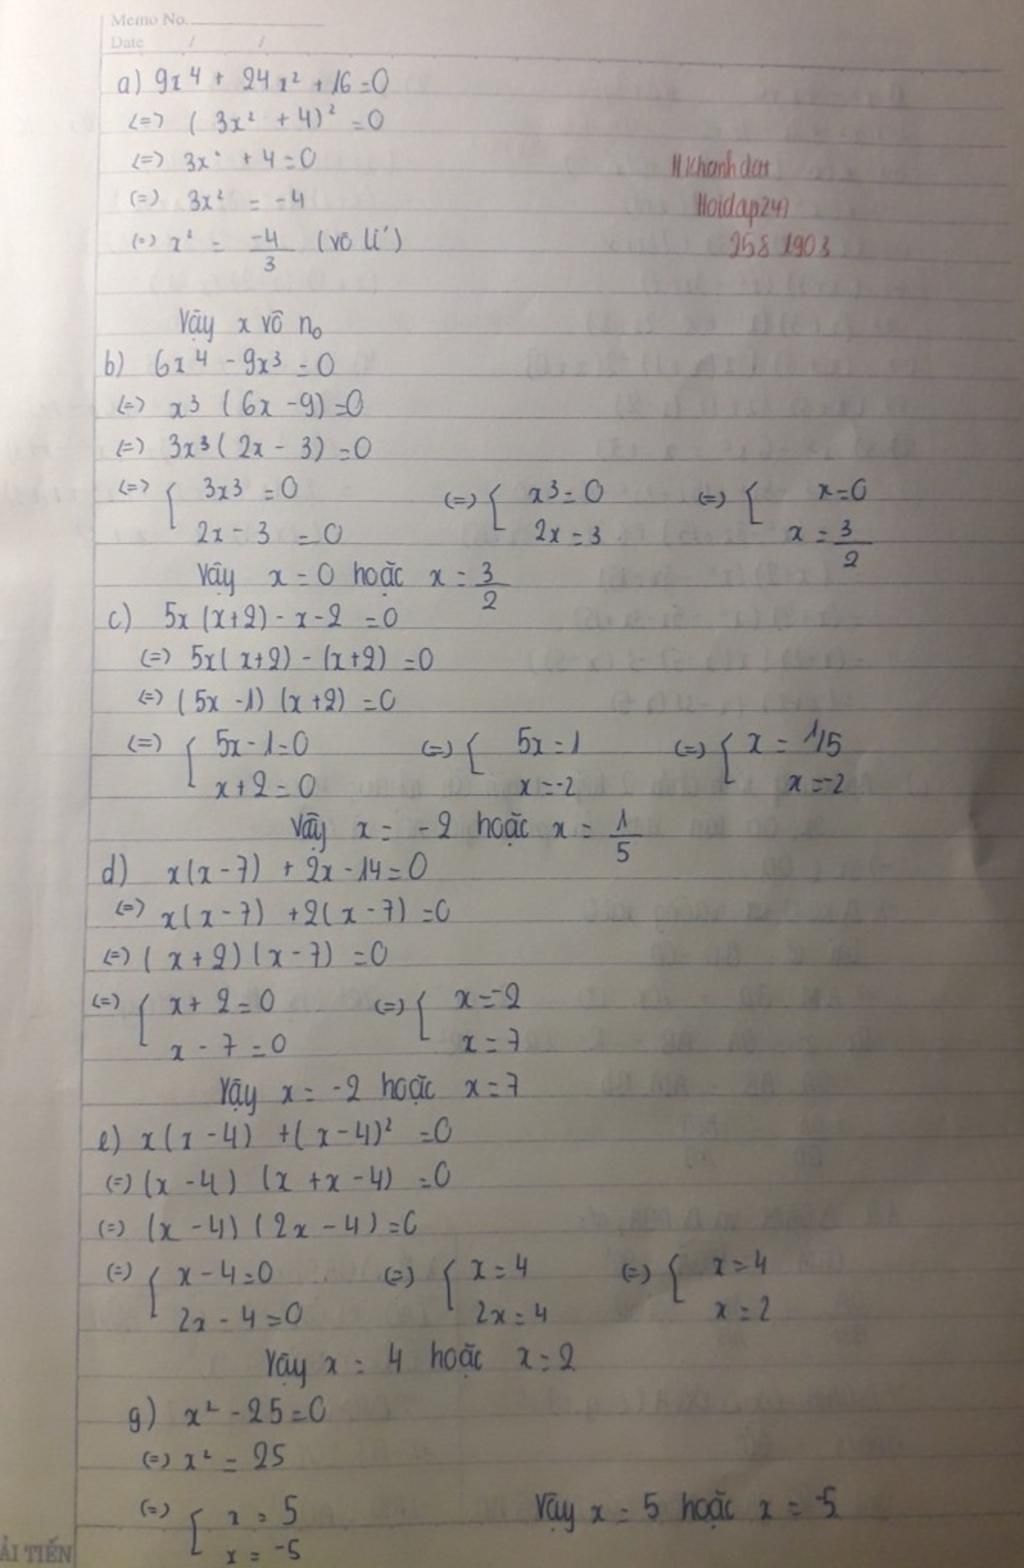 Memo No.
Date / /
a) 9x⁴ + 24x² + 16 = 0
(=) (3x² + 4)² = 0
(=) 3x² + 4 = 0
(=) 3x² = -4
(=) x² = -4/3 (vô lí)
N Khanhdat
Hoidap247
258 1903
Vậy x vô n₀
b) 6x⁴ - 9x³ = 0
(=) x³ (6x - 9) = 0
(=) 3x³ (2x - 3) = 0
(=) [ 3x³ = 0 (=) [ x³ = 0 (=) [ x = 0
2x - 3 = 0 2x = 3 x = 3/2
Vậy x = 0 hoặc x = 3/2
c) 5x (x+2) - x - 2 = 0
(=) 5x (x+2) - (x+2) = 0
(=) (5x - 1) (x+2) = 0
(=) [ 5x - 1 = 0 (=) [ 5x = 1 (=) [ x = 1/5
x + 2 = 0 x = -2 x = -2
Vậy x = -2 hoặc x = 1/5
d) x(x - 7) + 2x - 14 = 0
(=) x(x - 7) + 2(x - 7) = 0
(=) (x + 2) (x - 7) = 0
(=) [ x + 2 = 0 (=) [ x = -2
x - 7 = 0 x = 7
Vậy x = -2 hoặc x = 7
e) x(x - 4) + (x - 4)² = 0
(=) (x - 4) (x + x - 4) = 0
(=) (x - 4) (2x - 4) = 0
(=) [ x - 4 = 0 (=) [ x = 4 (=) [ x = 4
2x - 4 = 0 2x = 4 x = 2
Vậy x = 4 hoặc x = 2
g) x² - 25 = 0
(=) x² = 25
(=) [ x = 5 Vậy x = 5 hoặc x = -5
x = -5
ẢI TIẾN